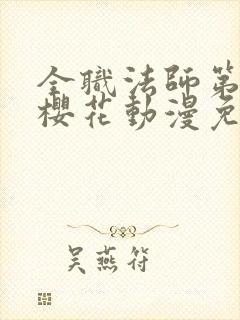 全職法師第
櫻花動漫免
吴燕符